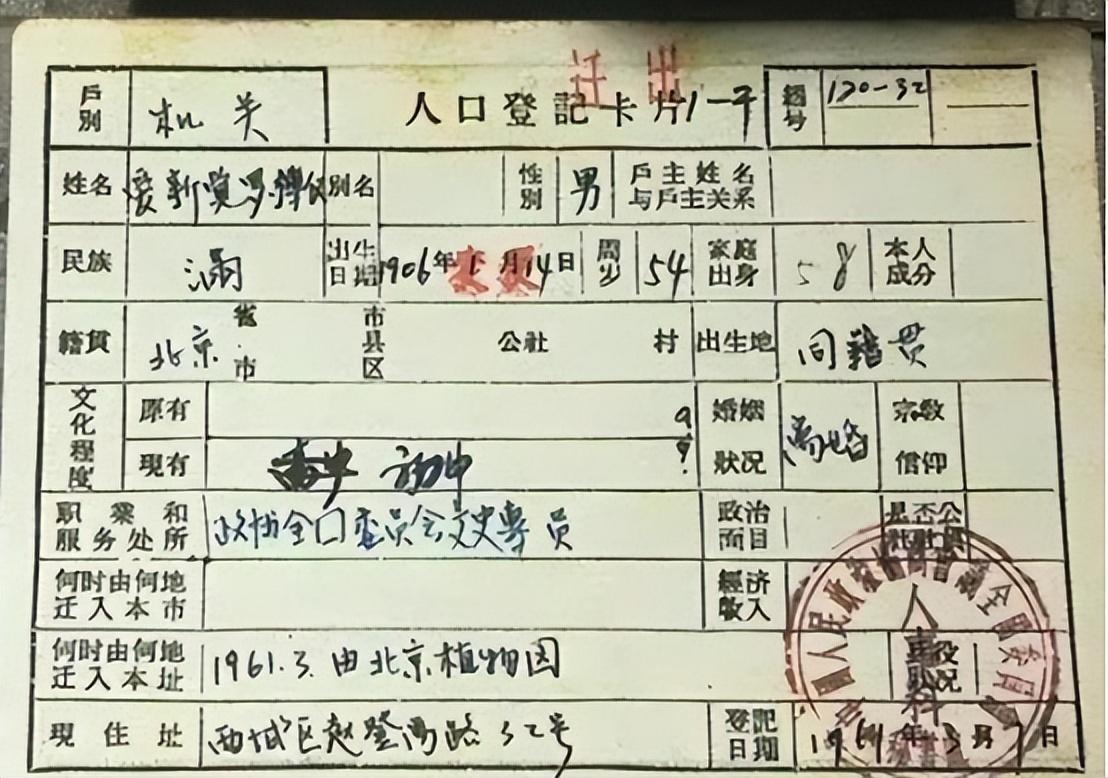 迁出
戶別 机关 人口登記卡片 1-干 編号 120-32
姓名 爱新覚罗 別名 性別 男 戶主姓名与戶主关系
民族 满 出生日期 1906年1月14日 周岁 54 家庭出身 58 本人成分
籍貫 北京 省市 市县区 公社 村 出生地 同籍贯
文化程度 原有 婚姻狀况 离婚 宗教信仰
現有 初中
职業和服务处所 政协全囗委员会文史專员 政治面目 是否公社社員
何时由何地迁入本市 經济收入
何时由何地迁入本址 1961.3.由北京植物园
現住址 西城区赵登禹路32号 登記日期 196 年3月7日
人事科